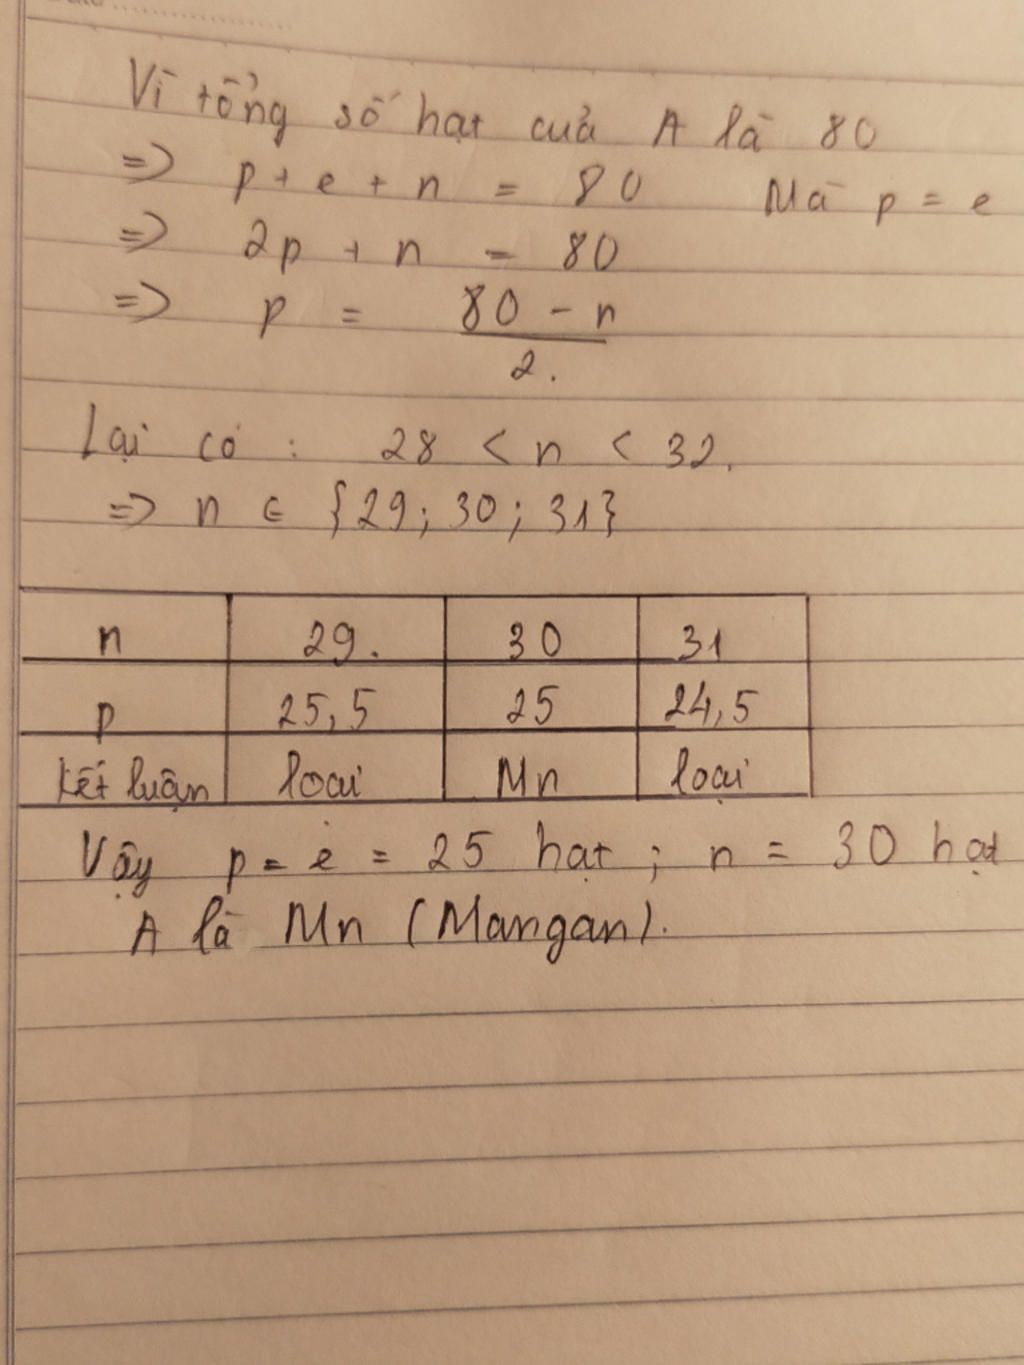 Vì tổng số hạt của A là 80
=> p + e + n = 80 Mà p = e
=> 2p + n = 80
=> p = 80 - n
2.
Lại có : 28 < n < 32.
=> n ∈ {29; 30; 31}
n 29. 30 31
p 25,5 25 24,5
Kết luận loại Mn loại
Vậy p = e = 25 hạt ; n = 30 hạt
A là Mn (Mangan).